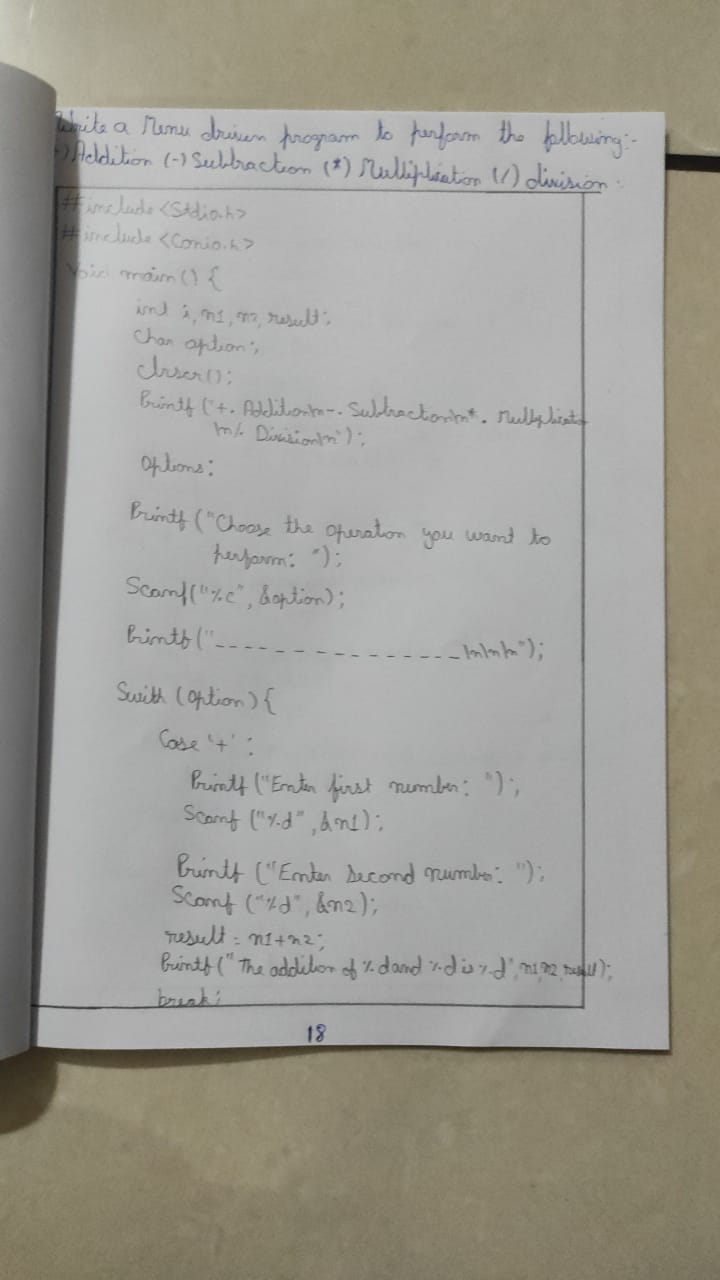 Write a Menu driven program to perform the following:-
+) Addition (-) Subtraction (*) Multiplication (/) division:
#include <Stdio.h>
#include <Conio.h>
Void main() {
int i, n1, n2, result;
Char option;
Clrscr();
Printf ("+. Addition\n-. Subtraction\n*. Multiplicatio
\n/. Division\n");
Options:
Printf ("Choose the operation you want to
perform: ");
Scanf("%c", &option);
Printf ("_ _ _ _ _ _ _ _ _ _ _ _ _ _ _ _\n\n\n");
Swith (option) {
Case '+' :
Printf ("Enter first number: ");
Scanf ("%d", &n1);
Printf ("Enter Second number: ");
Scanf ("%d", &n2);
result = n1+n2;
Printf (" The addition of %d and %d is %d", n1, n2, result);
break;
18